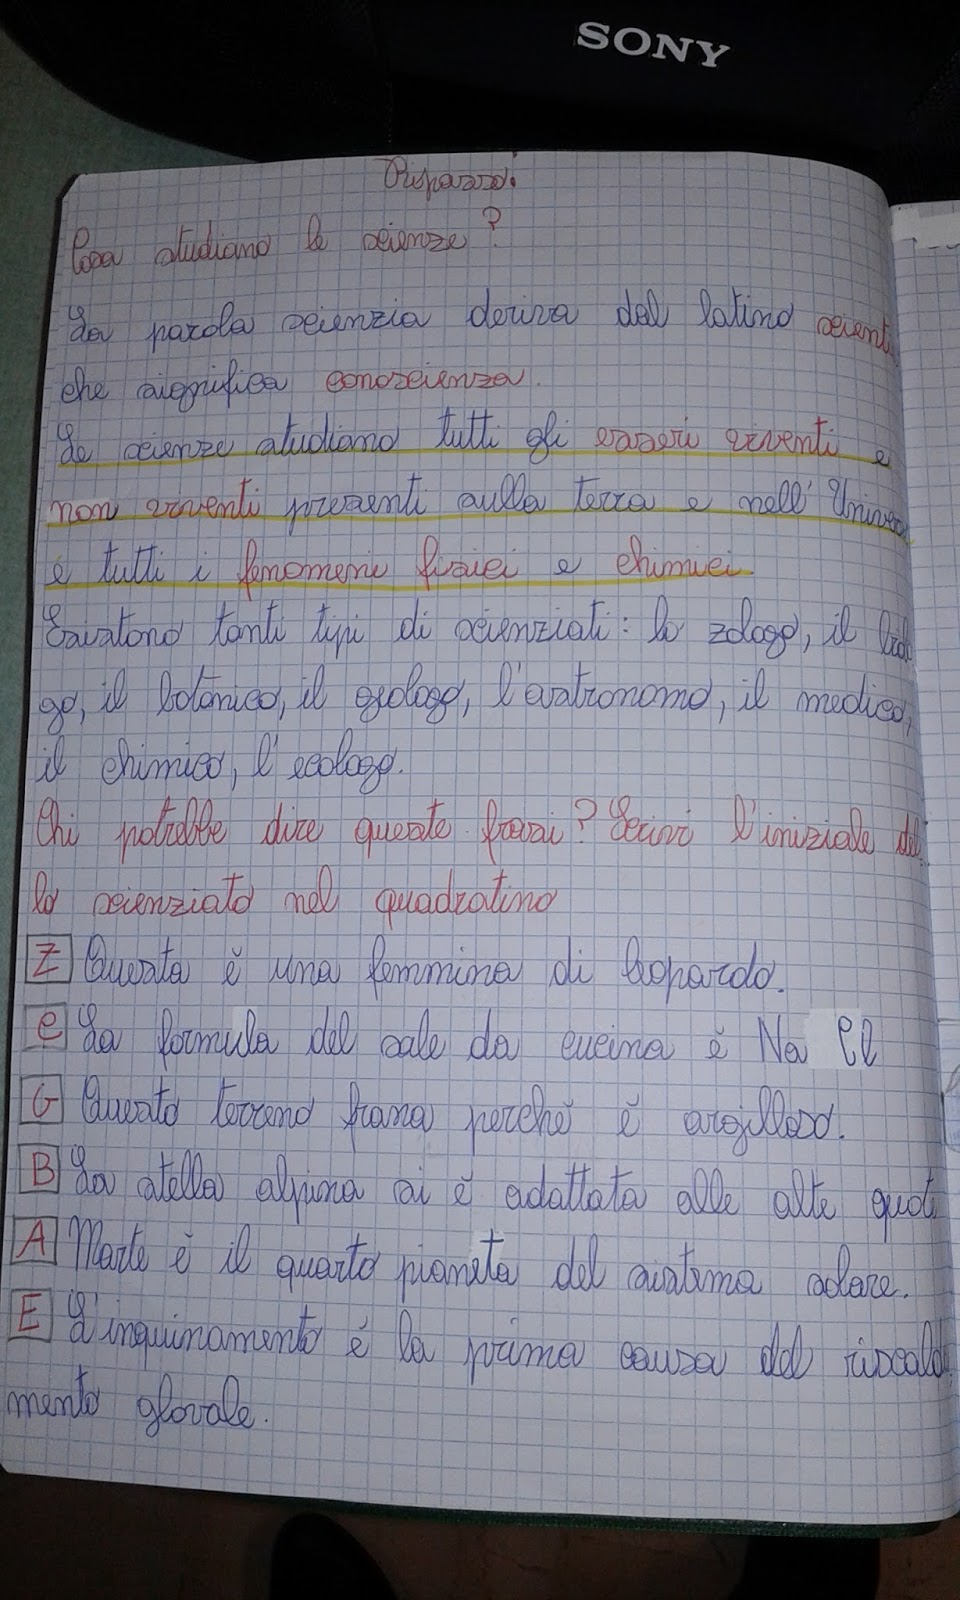 SONY
Ripasso:
Cosa studiano le scienze?
La parola scienzia deriva dal latino scienti
che significa conoscienza.
Le scienze studiano tutti gli esseri viventi e
non viventi presenti sulla terra e nell'Univers
e tutti i fenomeni fisici e chimici.
Esistono tanti tipi di scienziati: lo zologo, il biolo
go, il botanico, il geologo, l'astronomo, il medico,
il chimico, l'ecologo.
Chi potrebbe dire queste frasi? Scrivi l'iniziale del
lo scienziato nel quadratino
Z Questa è una femmina di leopardo.
C La formula del sale da cucina è Na Cl
G Questo terreno frana perché è argilloso.
B La stella alpina si è adattata alle alte quot
A Marte è il quarto pianeta del sistema solare.
E L'inquinamento è la prima causa del riscald
mento glovale.